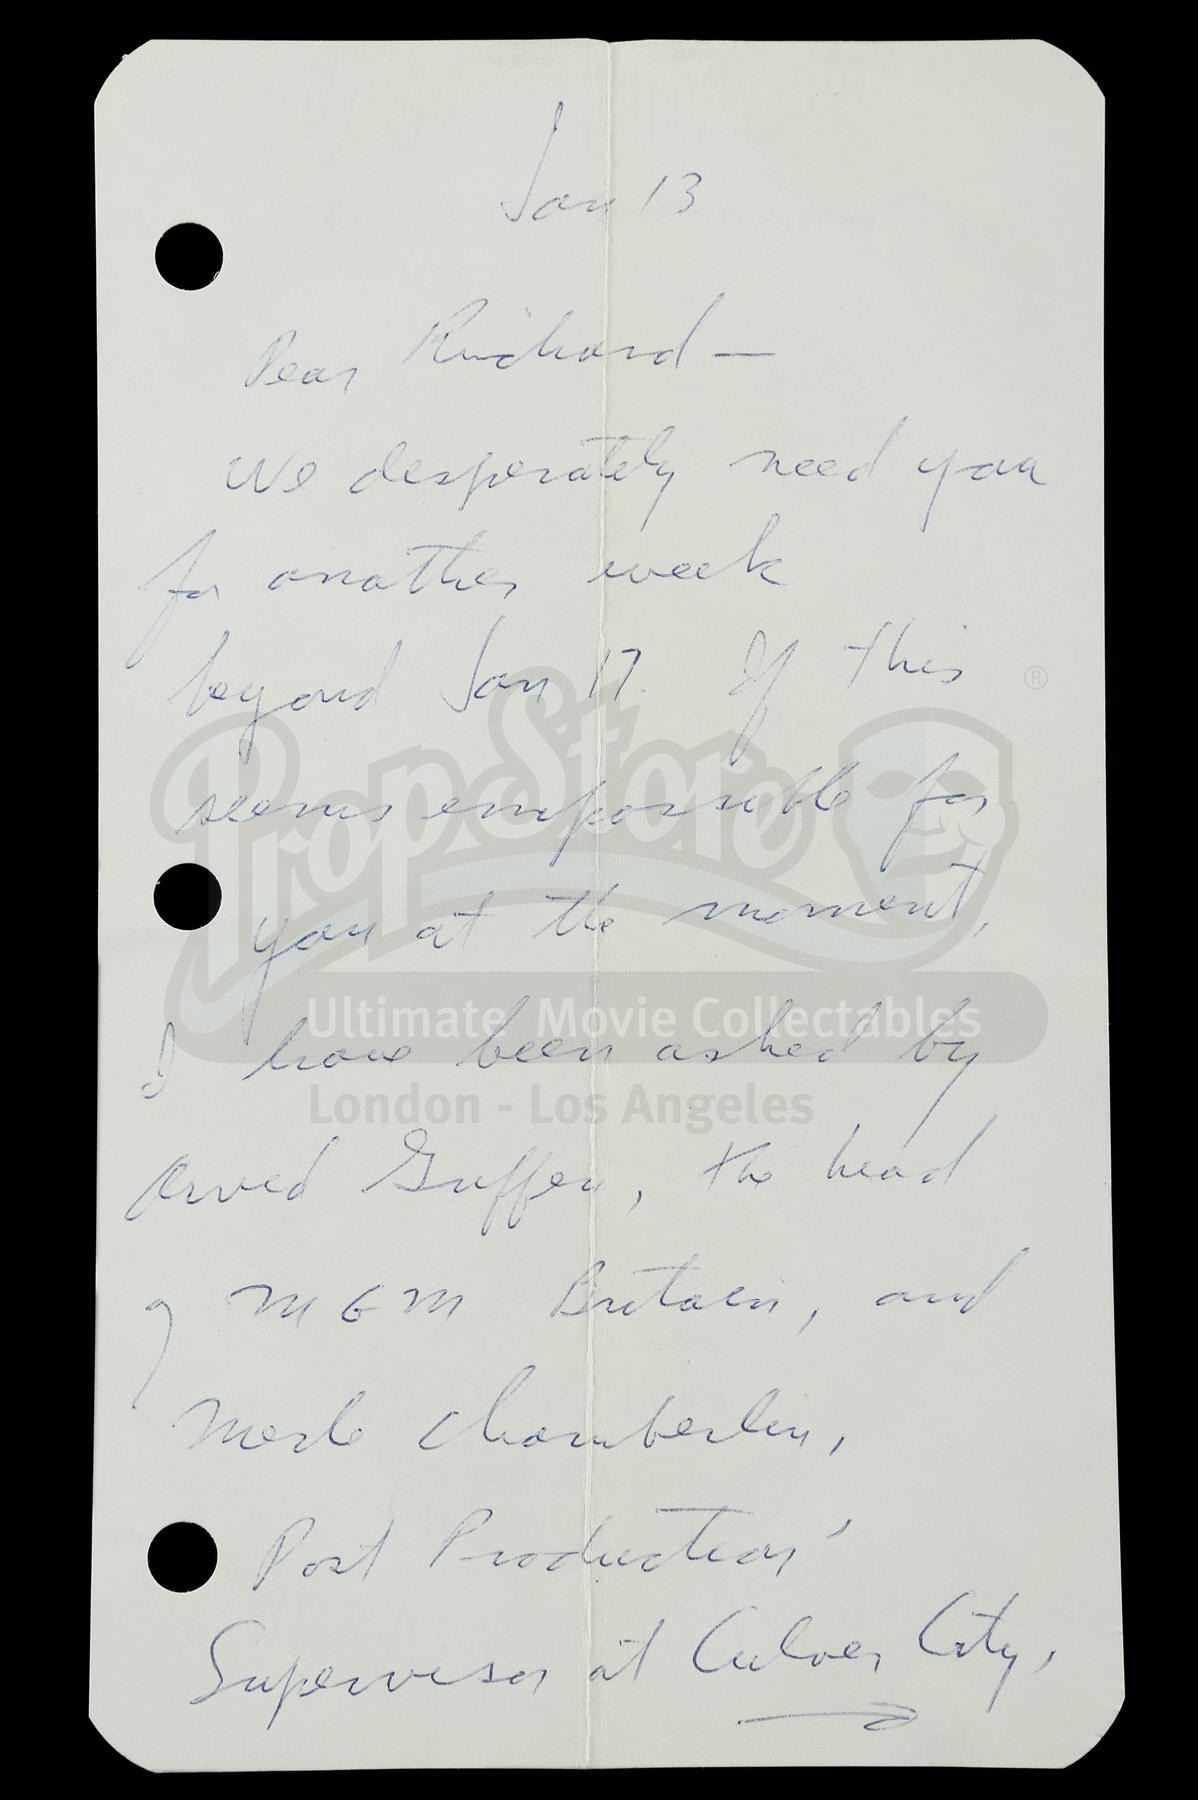 Jan 13
Dear Richard —
We desperately need you
for another week
beyond Jan 17. If this
®
seems impossible for
PropStore
you at the moment,
Ultimate Movie Collectables
I have been asked by
London - Los Angeles
Arved Griffen, the head
of MGM Britain, and
Merle Chamberlin,
Post Production
Supervisor at Culver City,